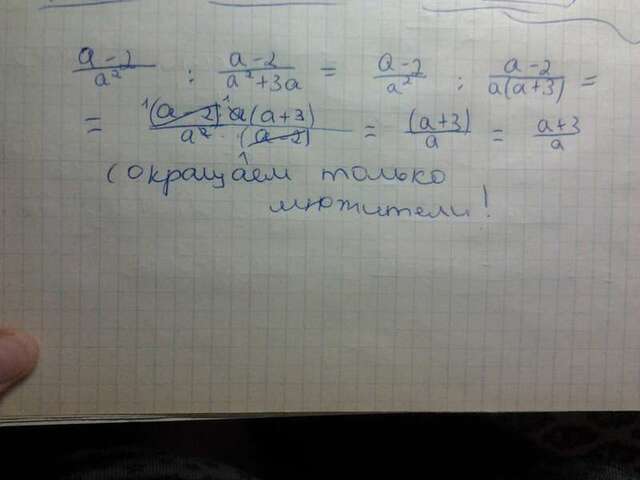 a-2/a² : a-2/a²+3a = a-2/a² : a-2/a(a+3) =
= (a-2)a(a+3)/a²·(a-2) = (a+3)/a = a+3/a
Сокращаем только
множители!